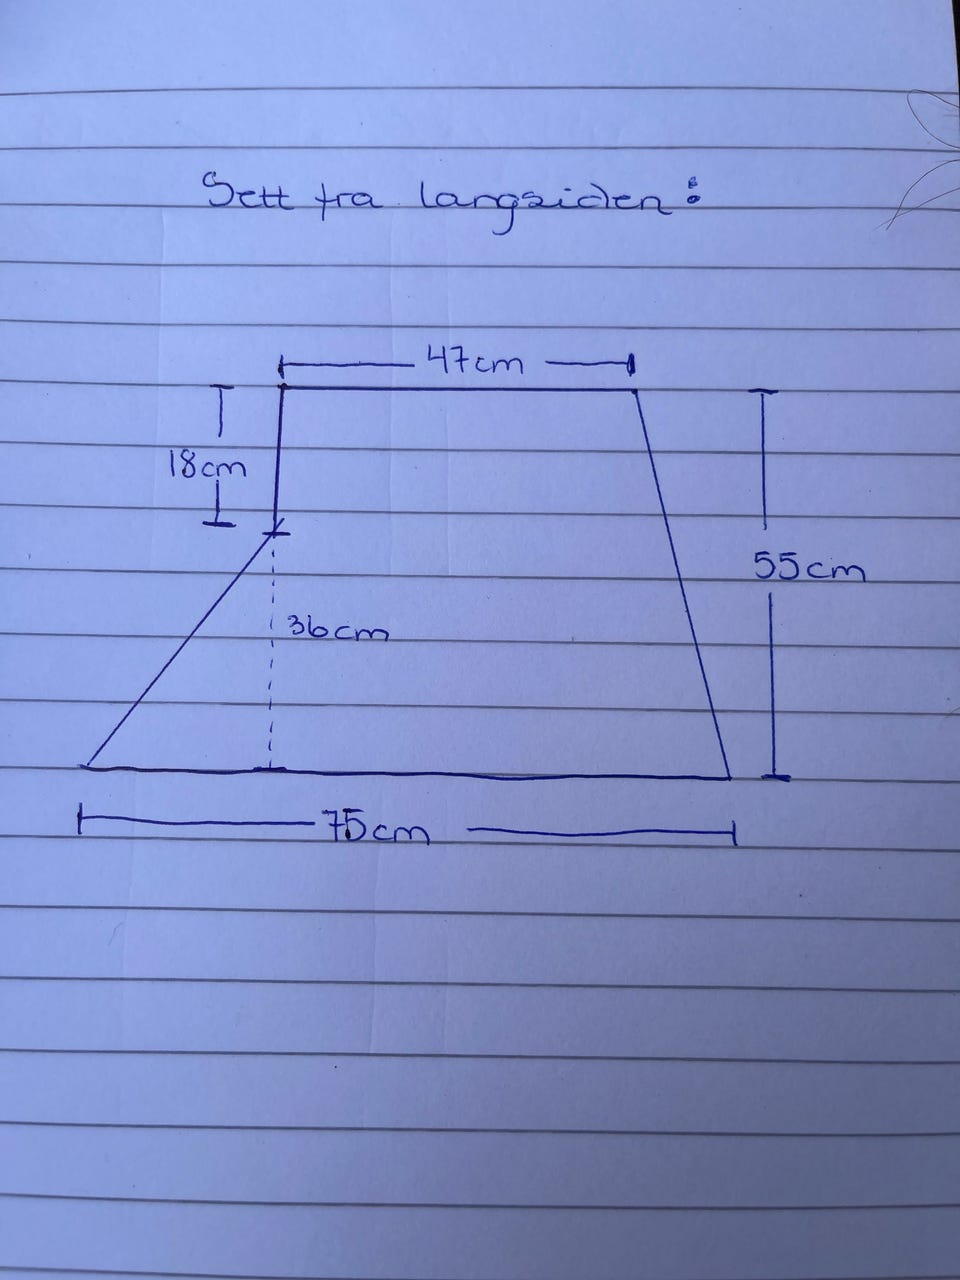 Sett fra langsiden:
47cm
18cm
55cm
36cm
75cm